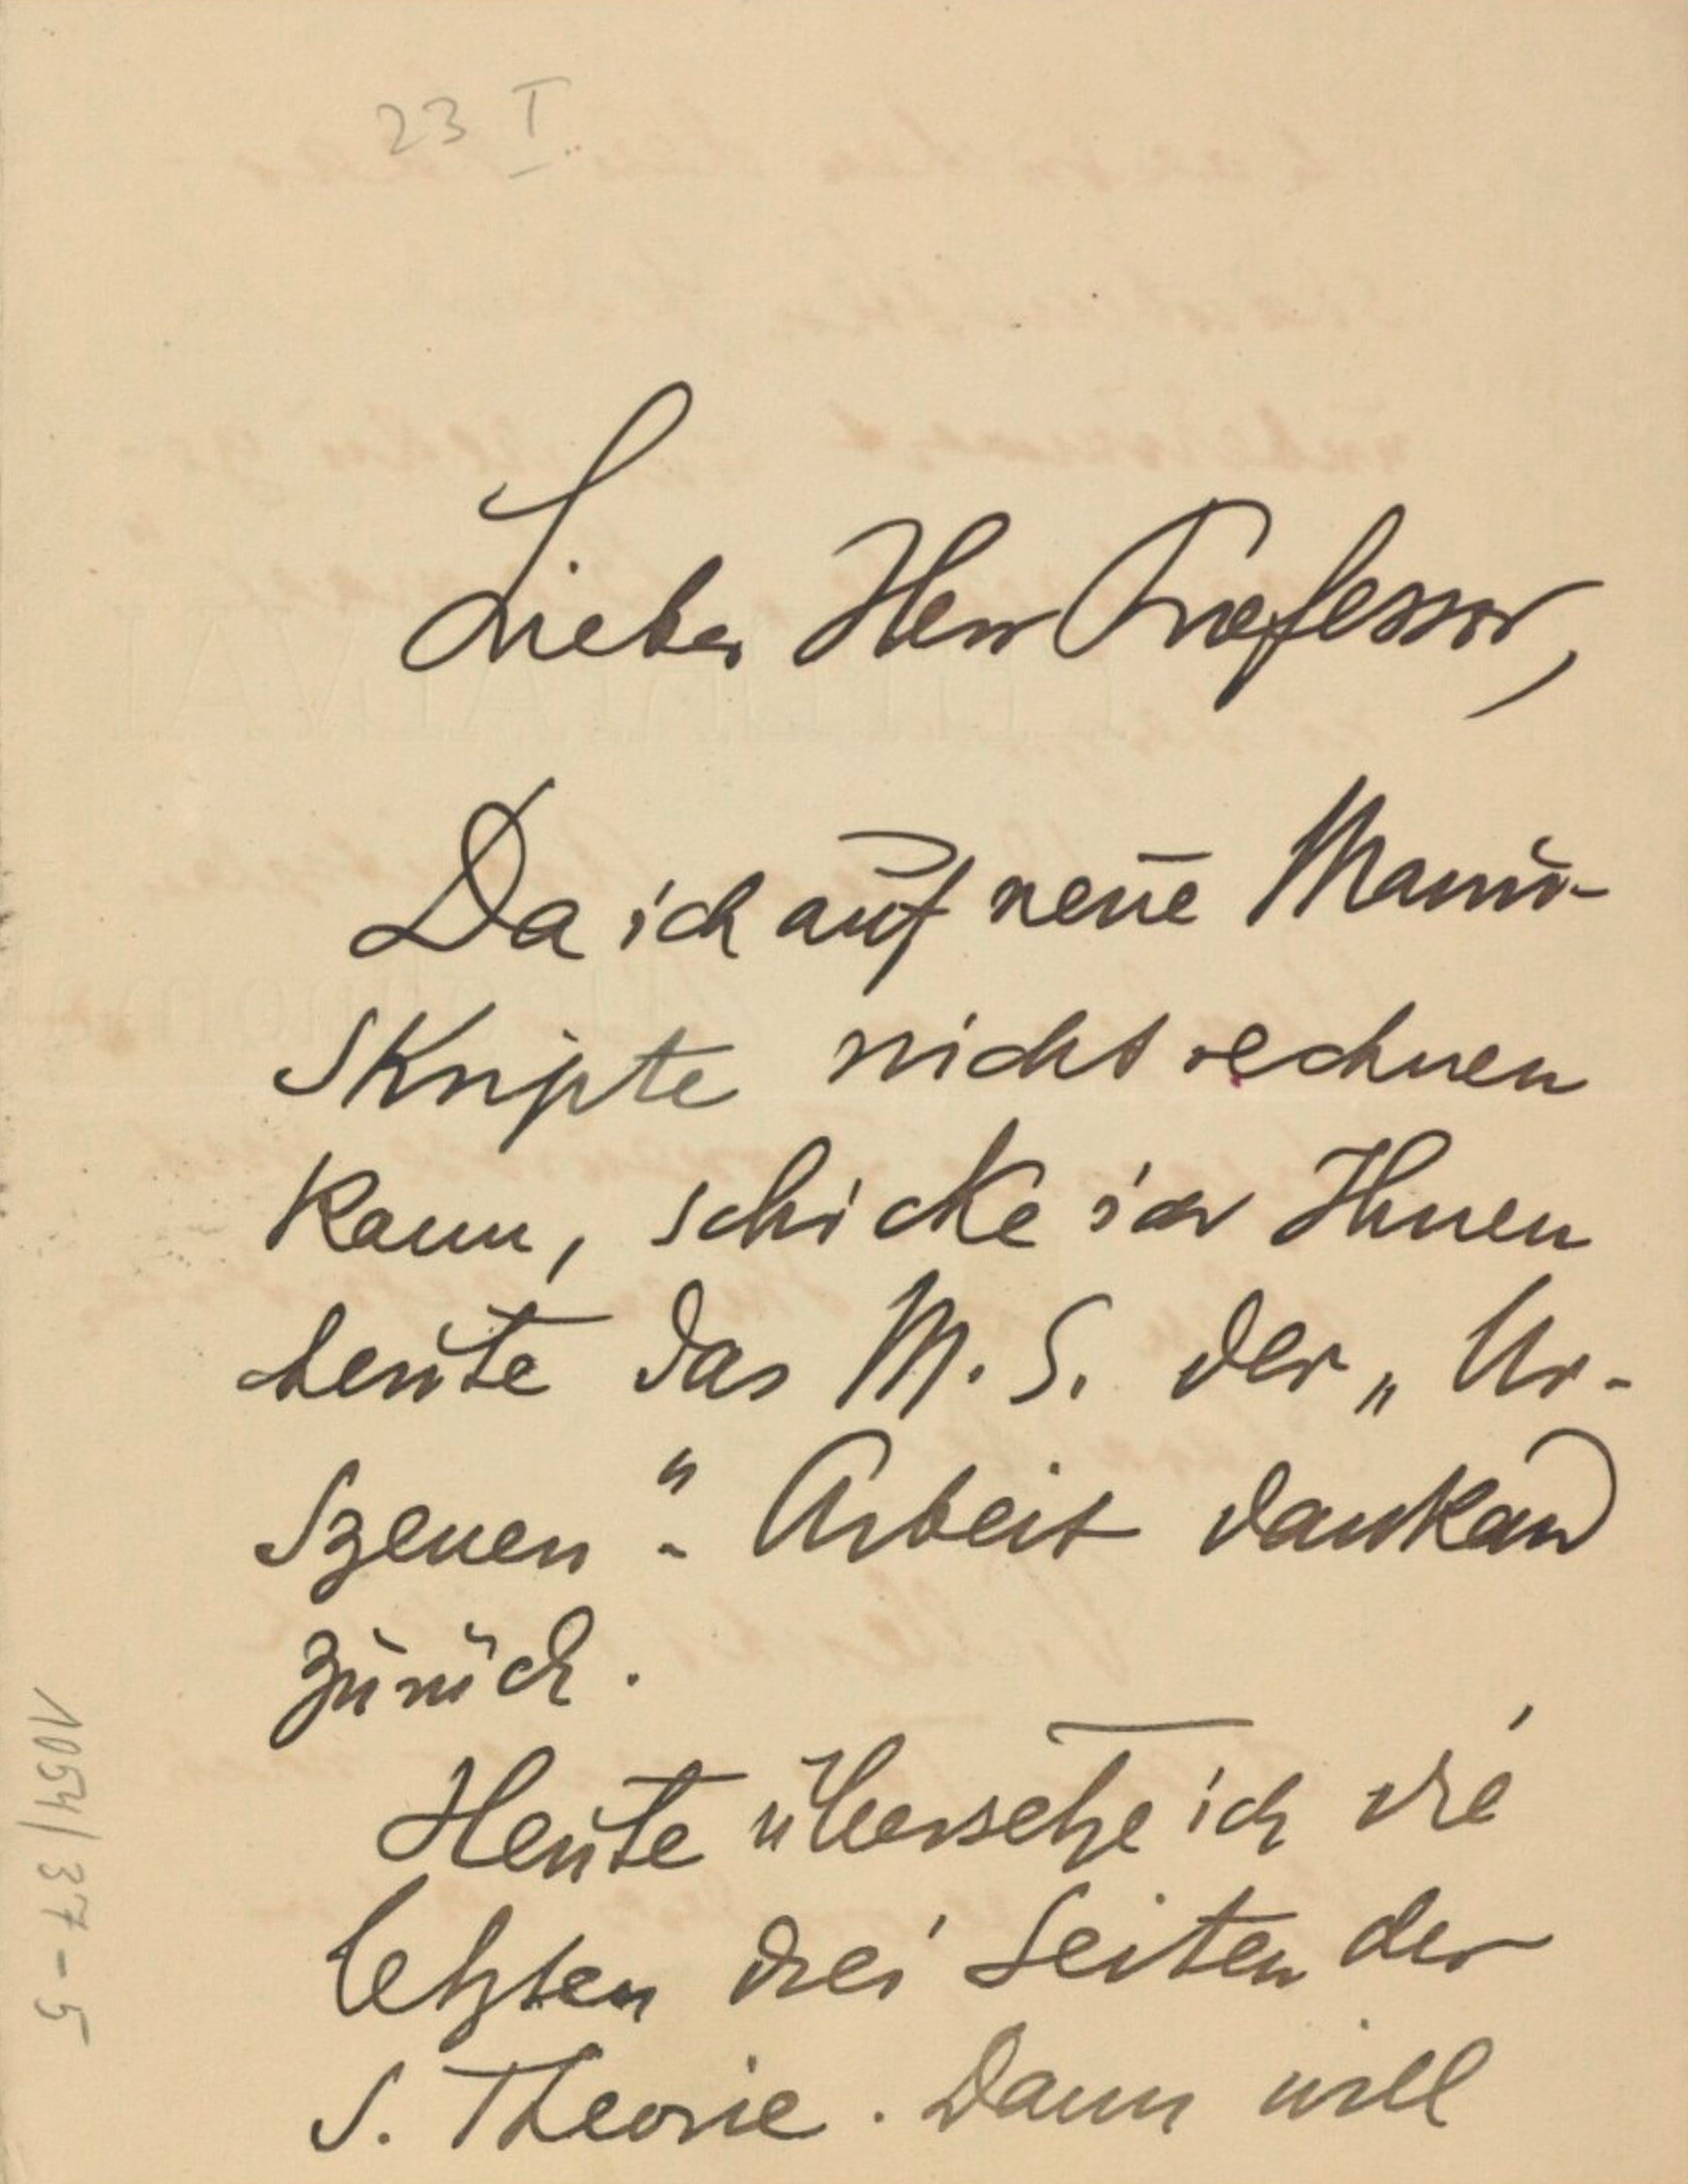 23 I
Lieber Herr Professor,
Da ich auf neue Manu-
skripte nicht rechnen
kann, schicke ich Ihnen
heute das M. S. der „Ur-
szenen"- Arbeit dankend
zurück.
Heute übersetze ich die
letzten drei Seiten der
S. Theorie. Dann will
1054/37-5